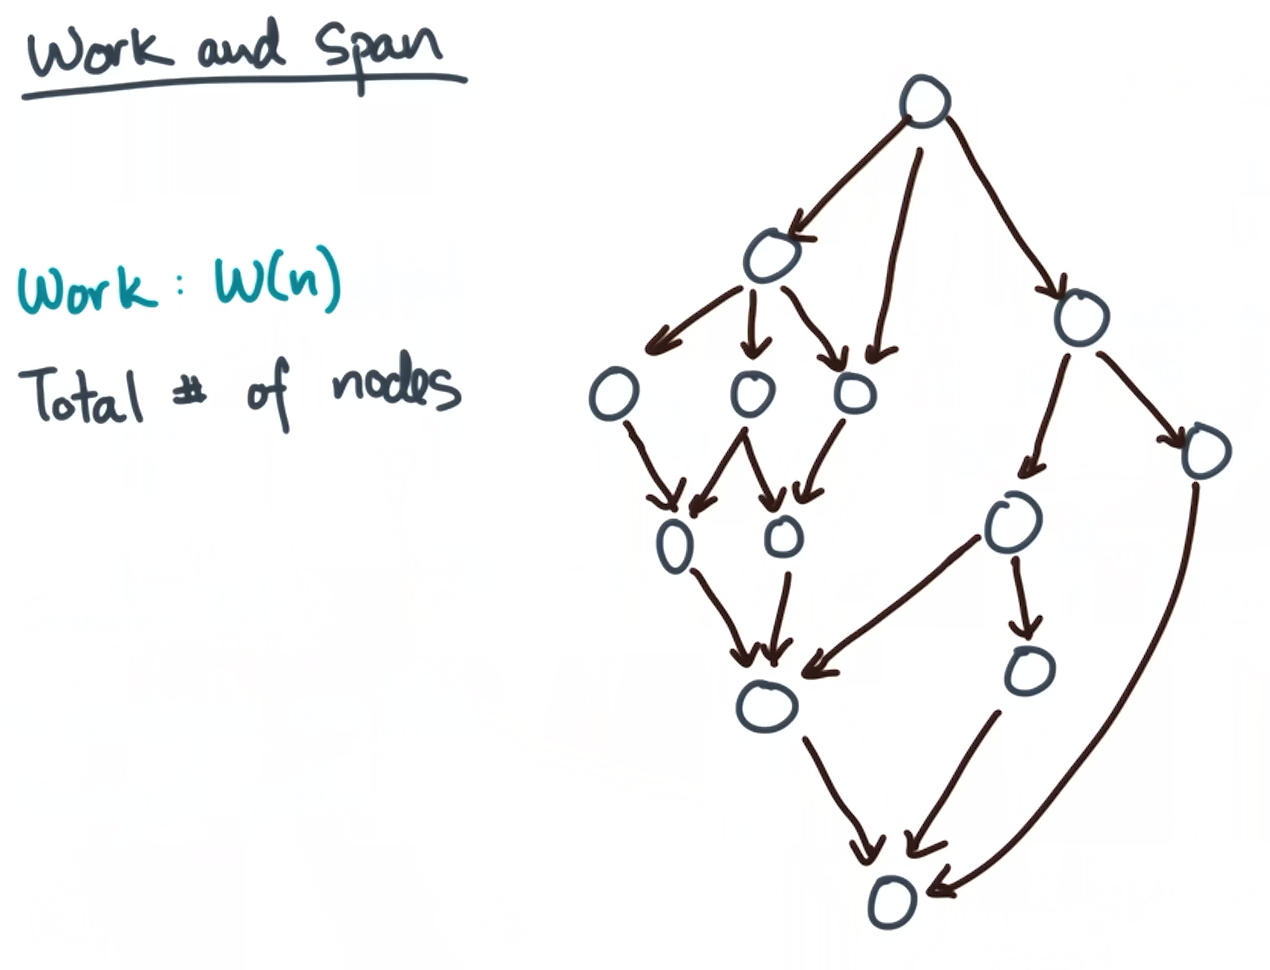 Work and Span
Work : W(n)
Total # of nodes